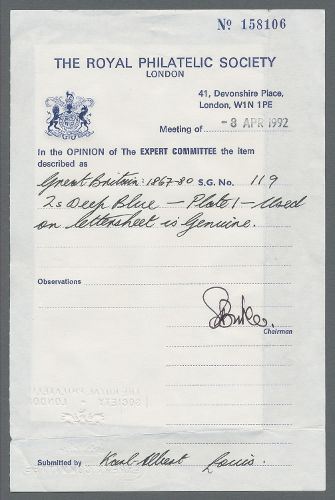 Nº 158106
THE ROYAL PHILATELIC SOCIETY
LONDON
41, Devonshire Place,
London, W1N 1PE
Meeting of - 8 APR 1992
In the OPINION of The EXPERT COMMITTEE the item
described as
Great Britain: 1867-80 S.G. No. 119
2s Deep Blue - Plate 1 - Used
on lettersheet is Genuine.
Observations
Chairman
THE ROYAL PHILATELIC
SOCIETY
LONDON
Submitted by Karl-Albert Louis.